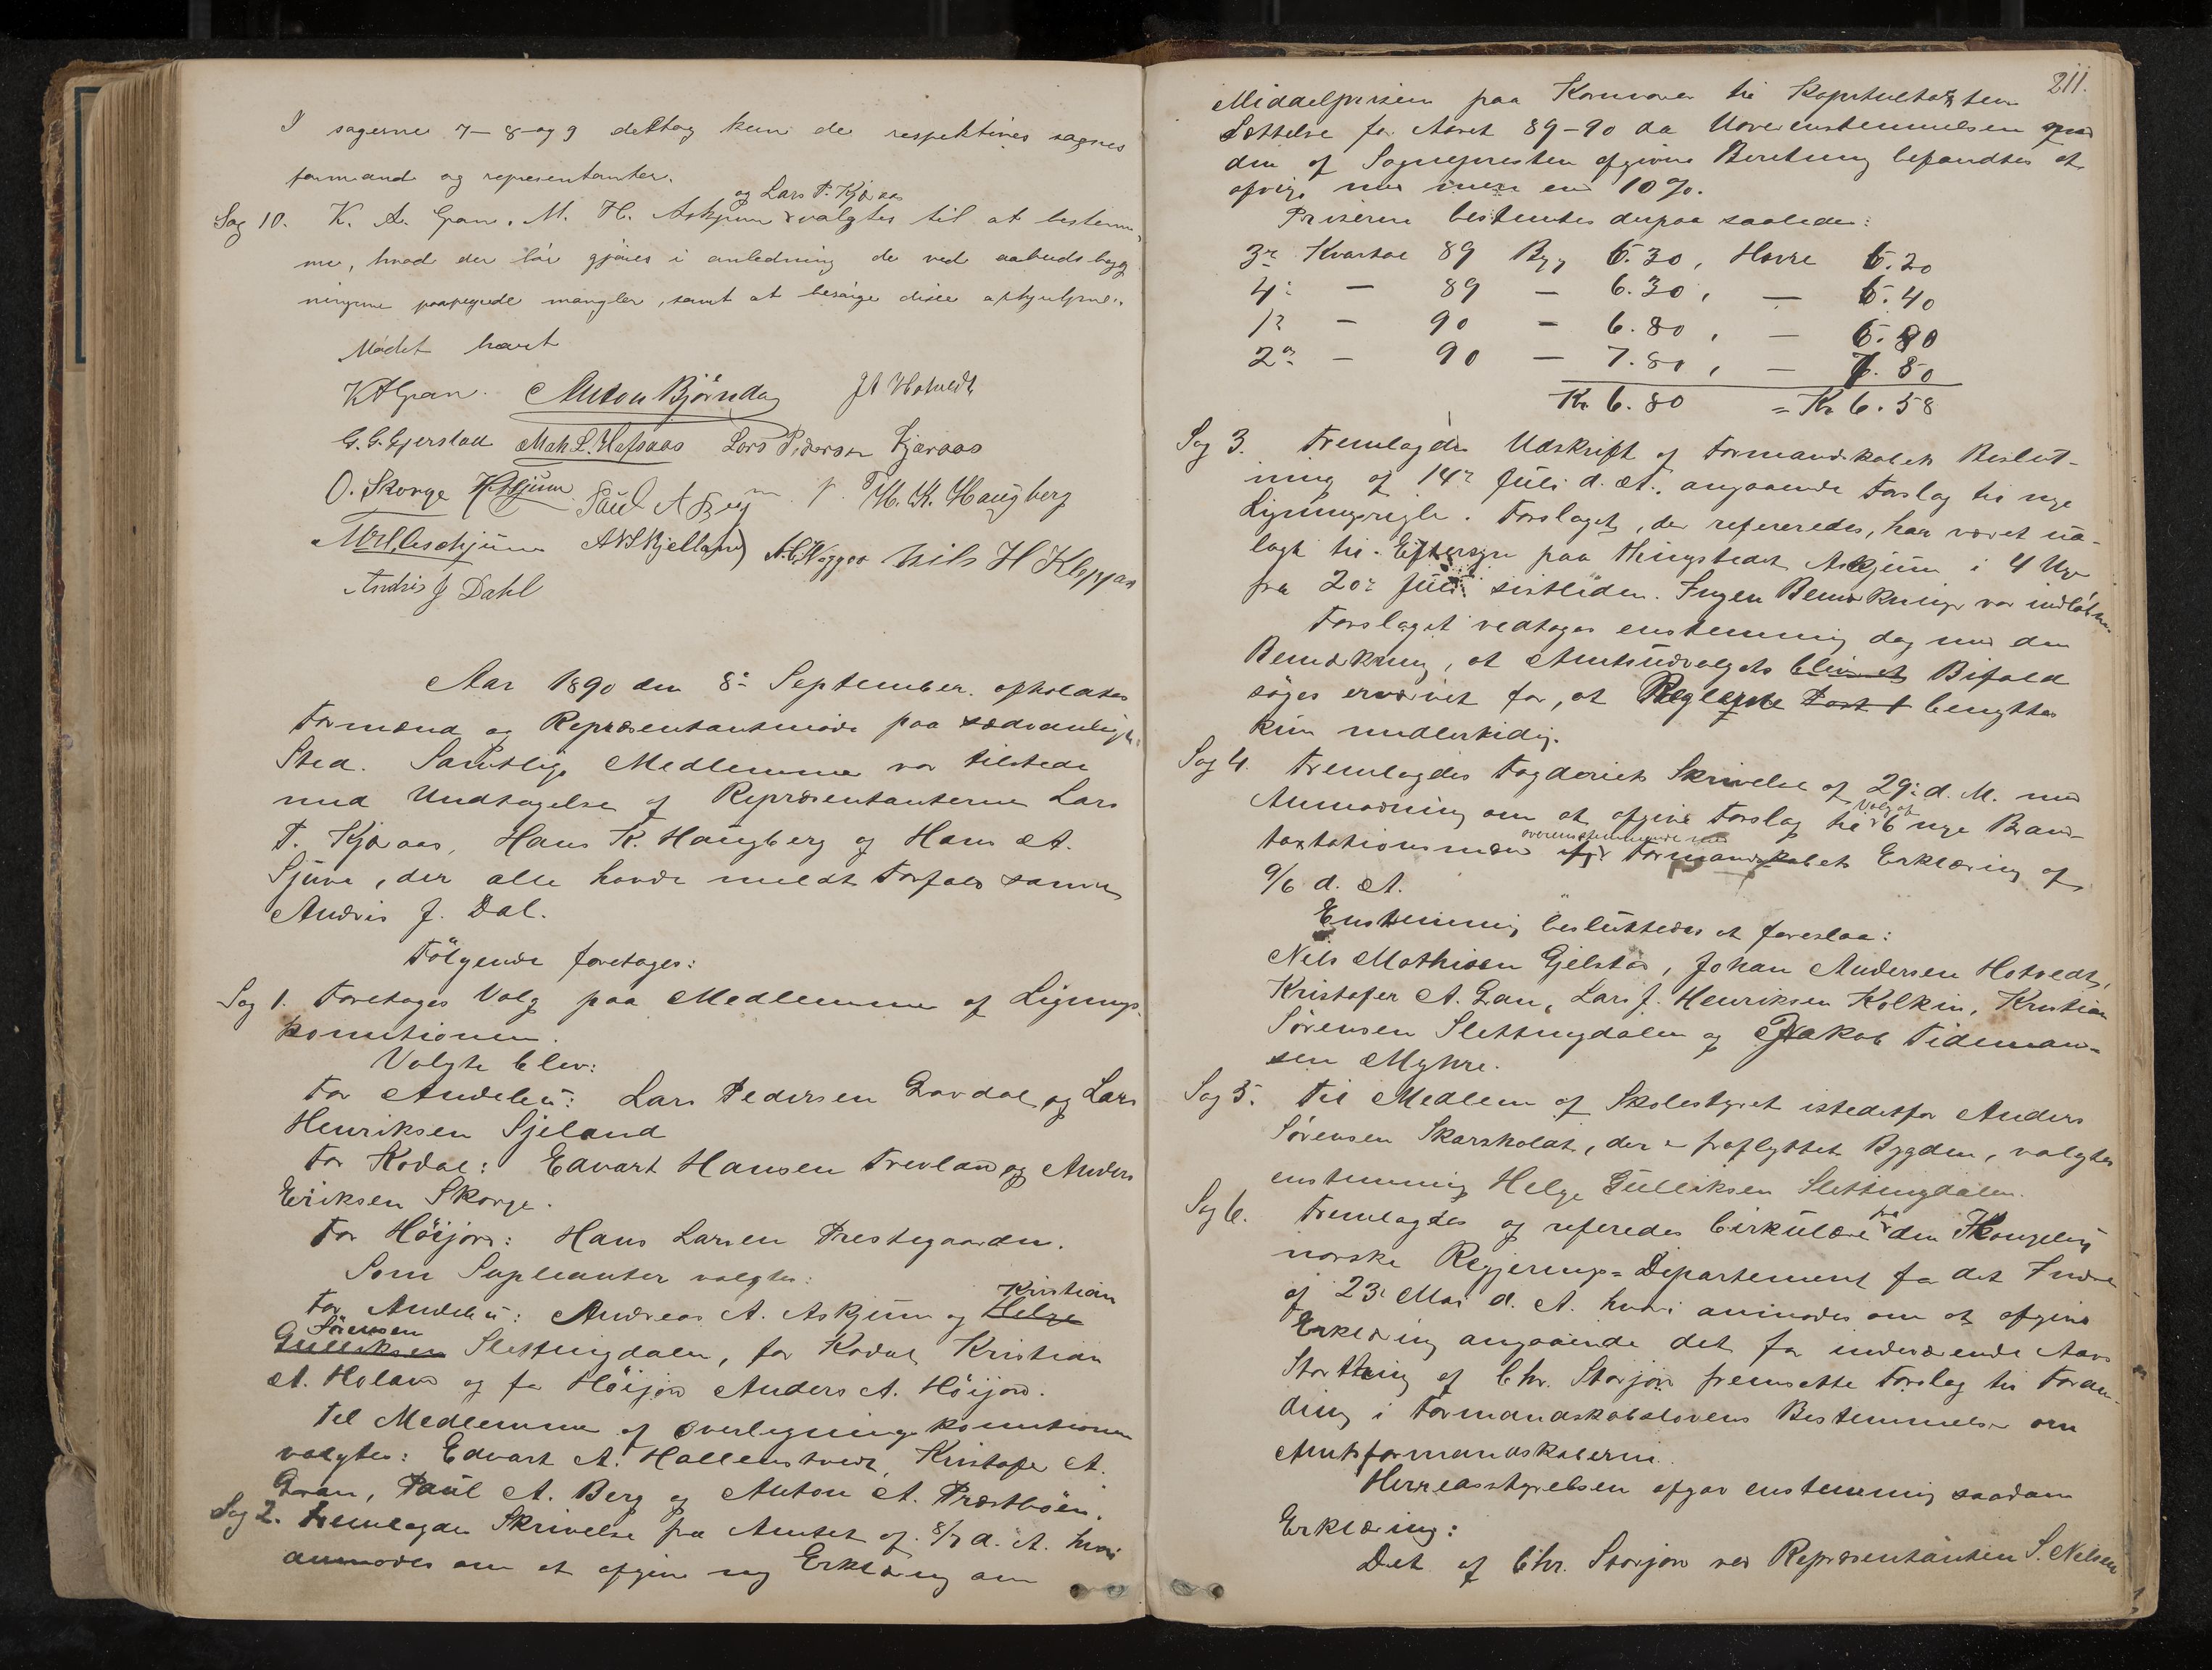 I sagerne 7-8-og 9 deltog kun de respektives sagnes
formænd og representanter.
og Lars P. Kjæraas
Sag 10. K. A. Gran, M. H. Askjum valgtes til at bestem-
me, hvad der bør gjøres i anledning de ved aabuds bygg
ningerne paapegede mangler, samt at besørge disse afhjulpne.
Mødet hævet
KAGran. Anton Bjørndag JA Hotvedt
G. G. Gjerstad Math L. Hafsaas Lars Pedersen Kjæraas
O. Skorge Paul A Berg H. K. Haugberg
AKSkjelland Nils H Kleppan
Andris J Dahl
Aar 1890 den 8de September afholdtes
Formænd og Repræsentantmøde paa sædvanligt
Sted. Samtlige Medlemmer var tilstede
med Undtagelse af Repræsentanterne Lars
P. Kjæraas, Hans K. Haugberg og Hans A.
Sjuve, der alle havde meldt Forfald samt
Andris J. Dal.
Følgende foretoges:
Sag 1. Foretoges Valg paa Medlemmer af Lignings-
komitionen.
Valgte blev:
For Andebu: Lars Pedersen Gravdal og Lars
Henriksen Sjeland
For Kodal: Edvart Hansen Trevland og Anders
Eriksen Skorge.
For Høijord: Hans Larsen Prestegaarden.
Som Supleanter valgtes:
Kristian
For Andebu: Andreas A. Askjum og Helge
Sørensen
Gulliksen Slettingdalen, for Kodal Kristian
A. Holand og for Høijord Anders A. Høijord.
Til Medlemmer af Overligningskomitionen
valgtes: Edvart A. Hallenstvedt, Kristofer A.
Gran, Paul A. Berg og Anton A. Præstbøen.
Sag 2. Fremlagdes Skrivelse fra Amtet af 8/7 d. A. hvori
anmodes om at afgive ny Erklæring om
211.
Middelprisen paa Kornvarer til Kapitultaxtens
Sættelse for Aaret 89-90 da Uoverensstemmelsen med
den af Sognepresten afgivne Beretning befandtes at
afvige med mere end 10%.
Priserne bestemtes derpaa saaledes:
3die Kvartal 89 Byg 6.30, Havre 6.20
4de — 89 — 6.30, — 6.40
1ste — 90 — 6.80, — 6.80
2det — 90 — 7.80, — 7.50
Kr. 6.80 = Kr 6.58
Sag 3. Fremlagdes Udskrift af Formandskabets Beslut-
ning af 14de Juli d. A. angaaende Forslag til nye
Ligningsregler. Forslaget, der refereredes, har været ud-
lagt til Eftersyn paa Thingstedet Askjum i 4 Uger
fra 20de Juli sistleden. Ingen Bemærkninger var indløbne
Forslaget vedtoges enstemmig dog med den
Bemærkning, at Amtsudvalgets blivet Bifald
søges erværvet for, at Reglerne Post 1 benyttes
kun midlertidig.
Sag 4. Fremlagdes Fogderiets Skrivelse af 29de d. M. med
Anmodning om at afgive Forslag til Valg af 6 nye Brand-
overensstemmende med
taxtationsmænd Formandskabets Erklæring af
9/6 d. A.
Enstemmig besluttedes at foreslaa:
Nils Mathisen Gjelstad, Johan Andersen Hotvedt,
Kristofer A. Gran, Lars J. Henriksen Kolkin, Kristian
Sørensen Slettingdalen og Jakob Tideman-
sen Myhre.
Sag 5. Til Medlem af Skolestyret istedetfor Anders
Sørensen Skarsholdt, der er fraflyttet Bygden, valgtes
enstemmig Helge Gulliksen Slettingdalen.
Sag 6. Fremlagdes og referedes Cirkulære fra den Kongelig
norske Regjerings-Departement for det Indre
af 23de Mai d. A. hvori anmodes om at afgive
Erklæring angaaende det for indeværende Aars
Storthing af Chr. Storjord fremsatte Forslag til Foran-
dring i Formandskabslovens Bestemmelser om
Amtsformandskaberne.
Herredsstyrelsen afgav enstemmig saadan
Erklæring:
Det af Chr. Storjord ved Repræsentanten S. Nielsen